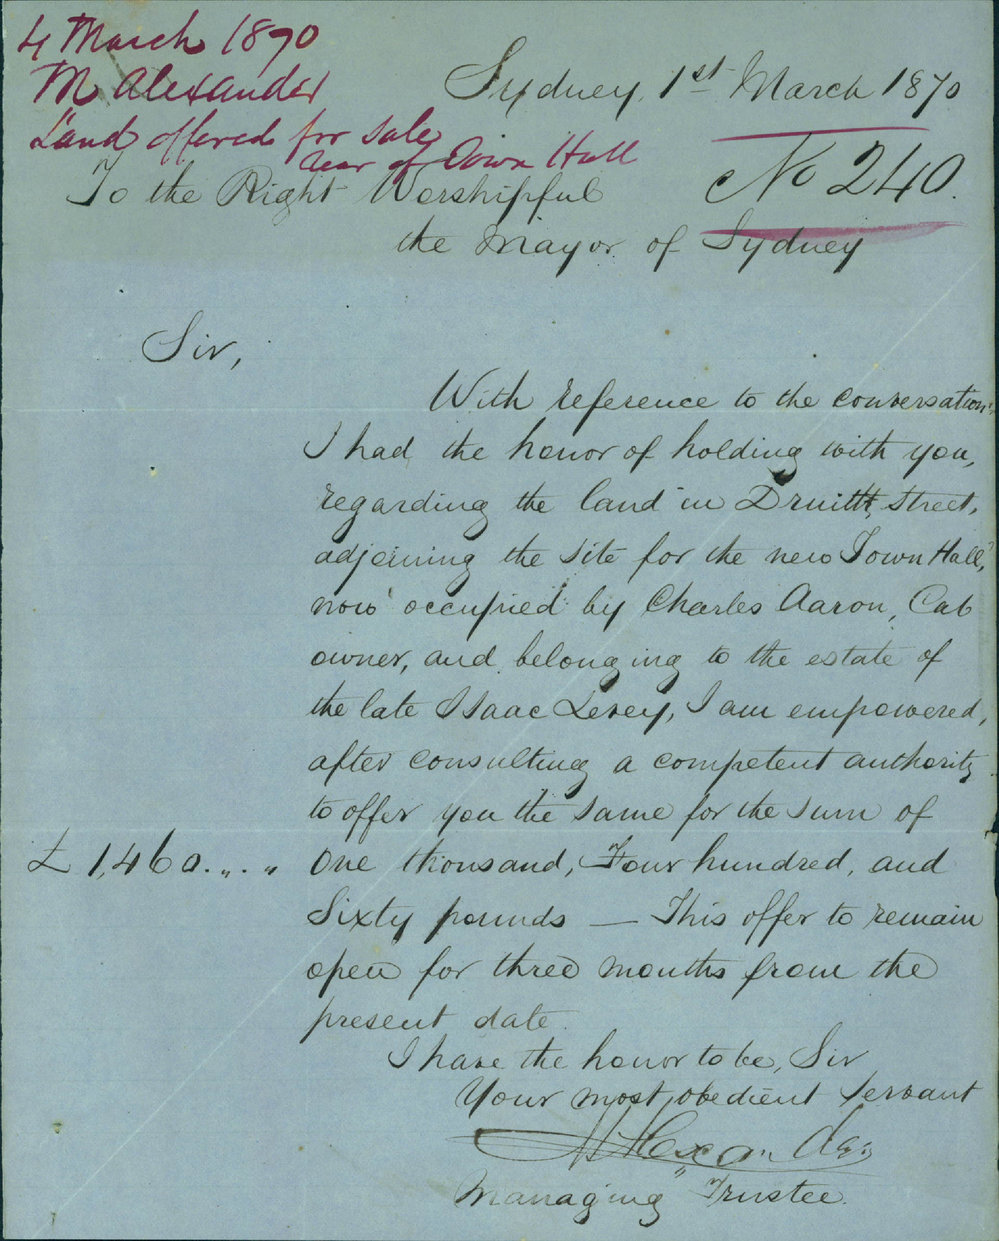 4 March 1870
M Alexander
Land offered for sale
Rear of Town Hall
Sydney 1st March 1870
No 240.
To the Right Worshipful
the Mayor of Sydney
Sir,
With reference to the conversation
I had the honor of holding with you,
regarding the land in Druitt Street,
adjoining the site for the new Town Hall,
now occupied by Charles Aaron, Cab
owner, and belonging to the estate of
the late Isaac Levey, I am empowered,
after consulting a competent authority
to offer you the same for the sum of
£1,460.,,.,, One thousand, Four hundred, and
Sixty pounds — This offer to remain
open for three months from the
present date.
I have the honor to be, Sir
Your most obedient servant
M Alexander
Managing Trustee.